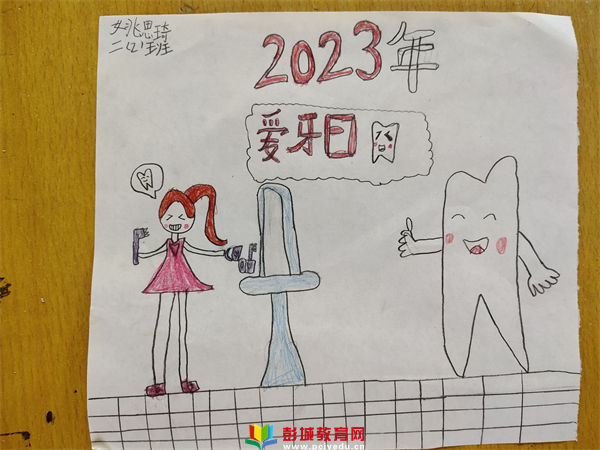 姚思琦
二(2)班
2023年
爱牙日
彭城教育网
www.pcjyedu.cn